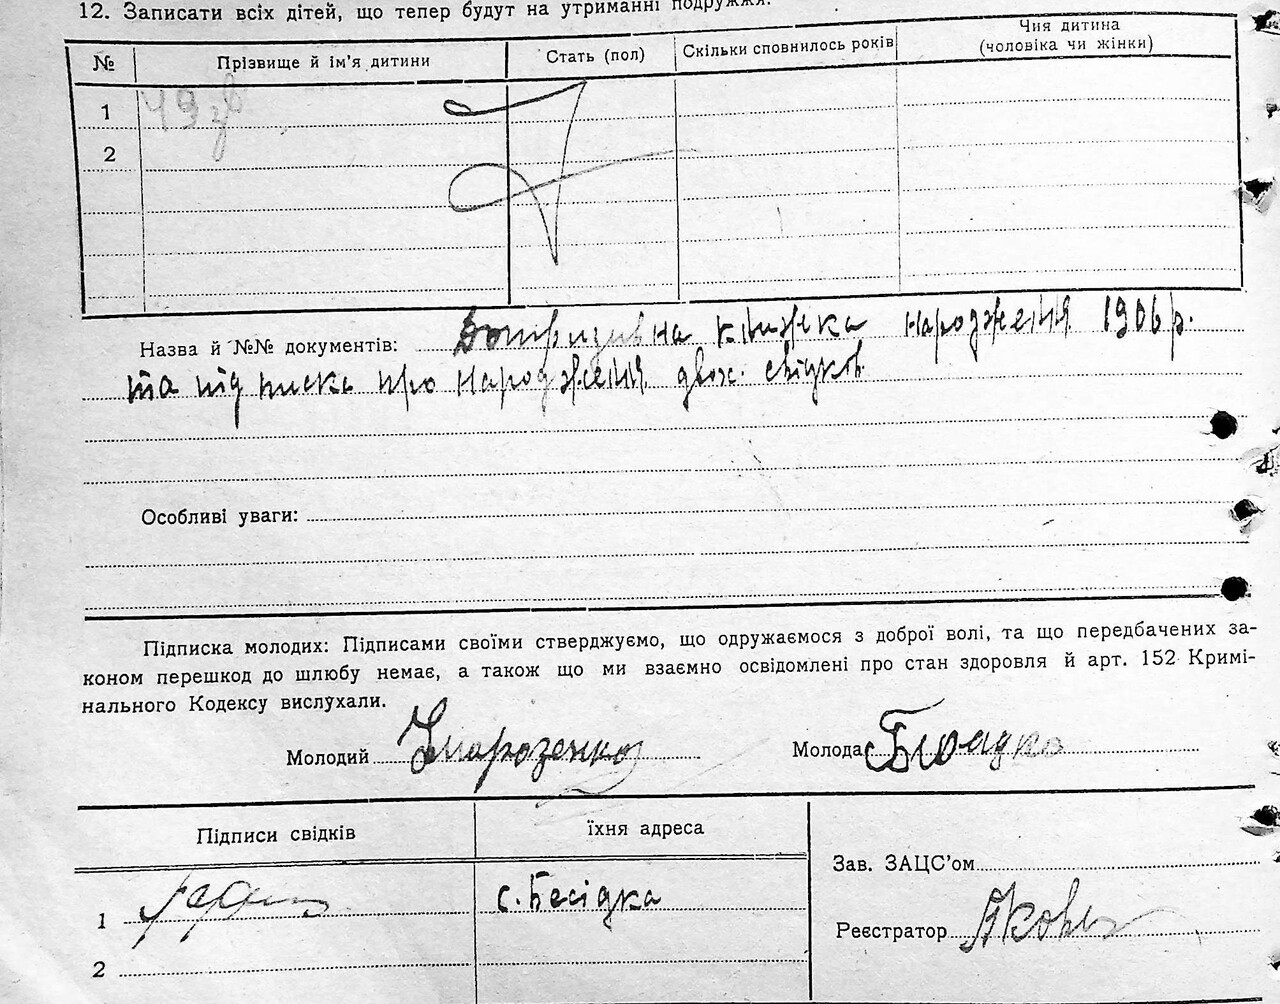 12. Записати всіх дітей, що тепер будут на утриманні подружжя.
№ Прізвище й ім’я дитини Стать (пол) Скільки сповнилось років Чия дитина (чоловіка чи жінки)
1
2
Назва й №№ документів: книжка народження 1906 р.
та підписка про народження двох свідков
Особливі уваги:
Підписка молодих: Підписами своїми стверджуємо, що одружаємося з доброї волі, та що передбачених за-
коном перешкод до шлюбу немає, а також що ми взаємно освідомлені про стан здоровля й арт. 152 Кримі-
нального Кодексу вислухали.
Молодий Молода
Підписи свідків їхня адреса
Зав. ЗАЦС’ом
1 с. Бесідка
Реєстратор
2